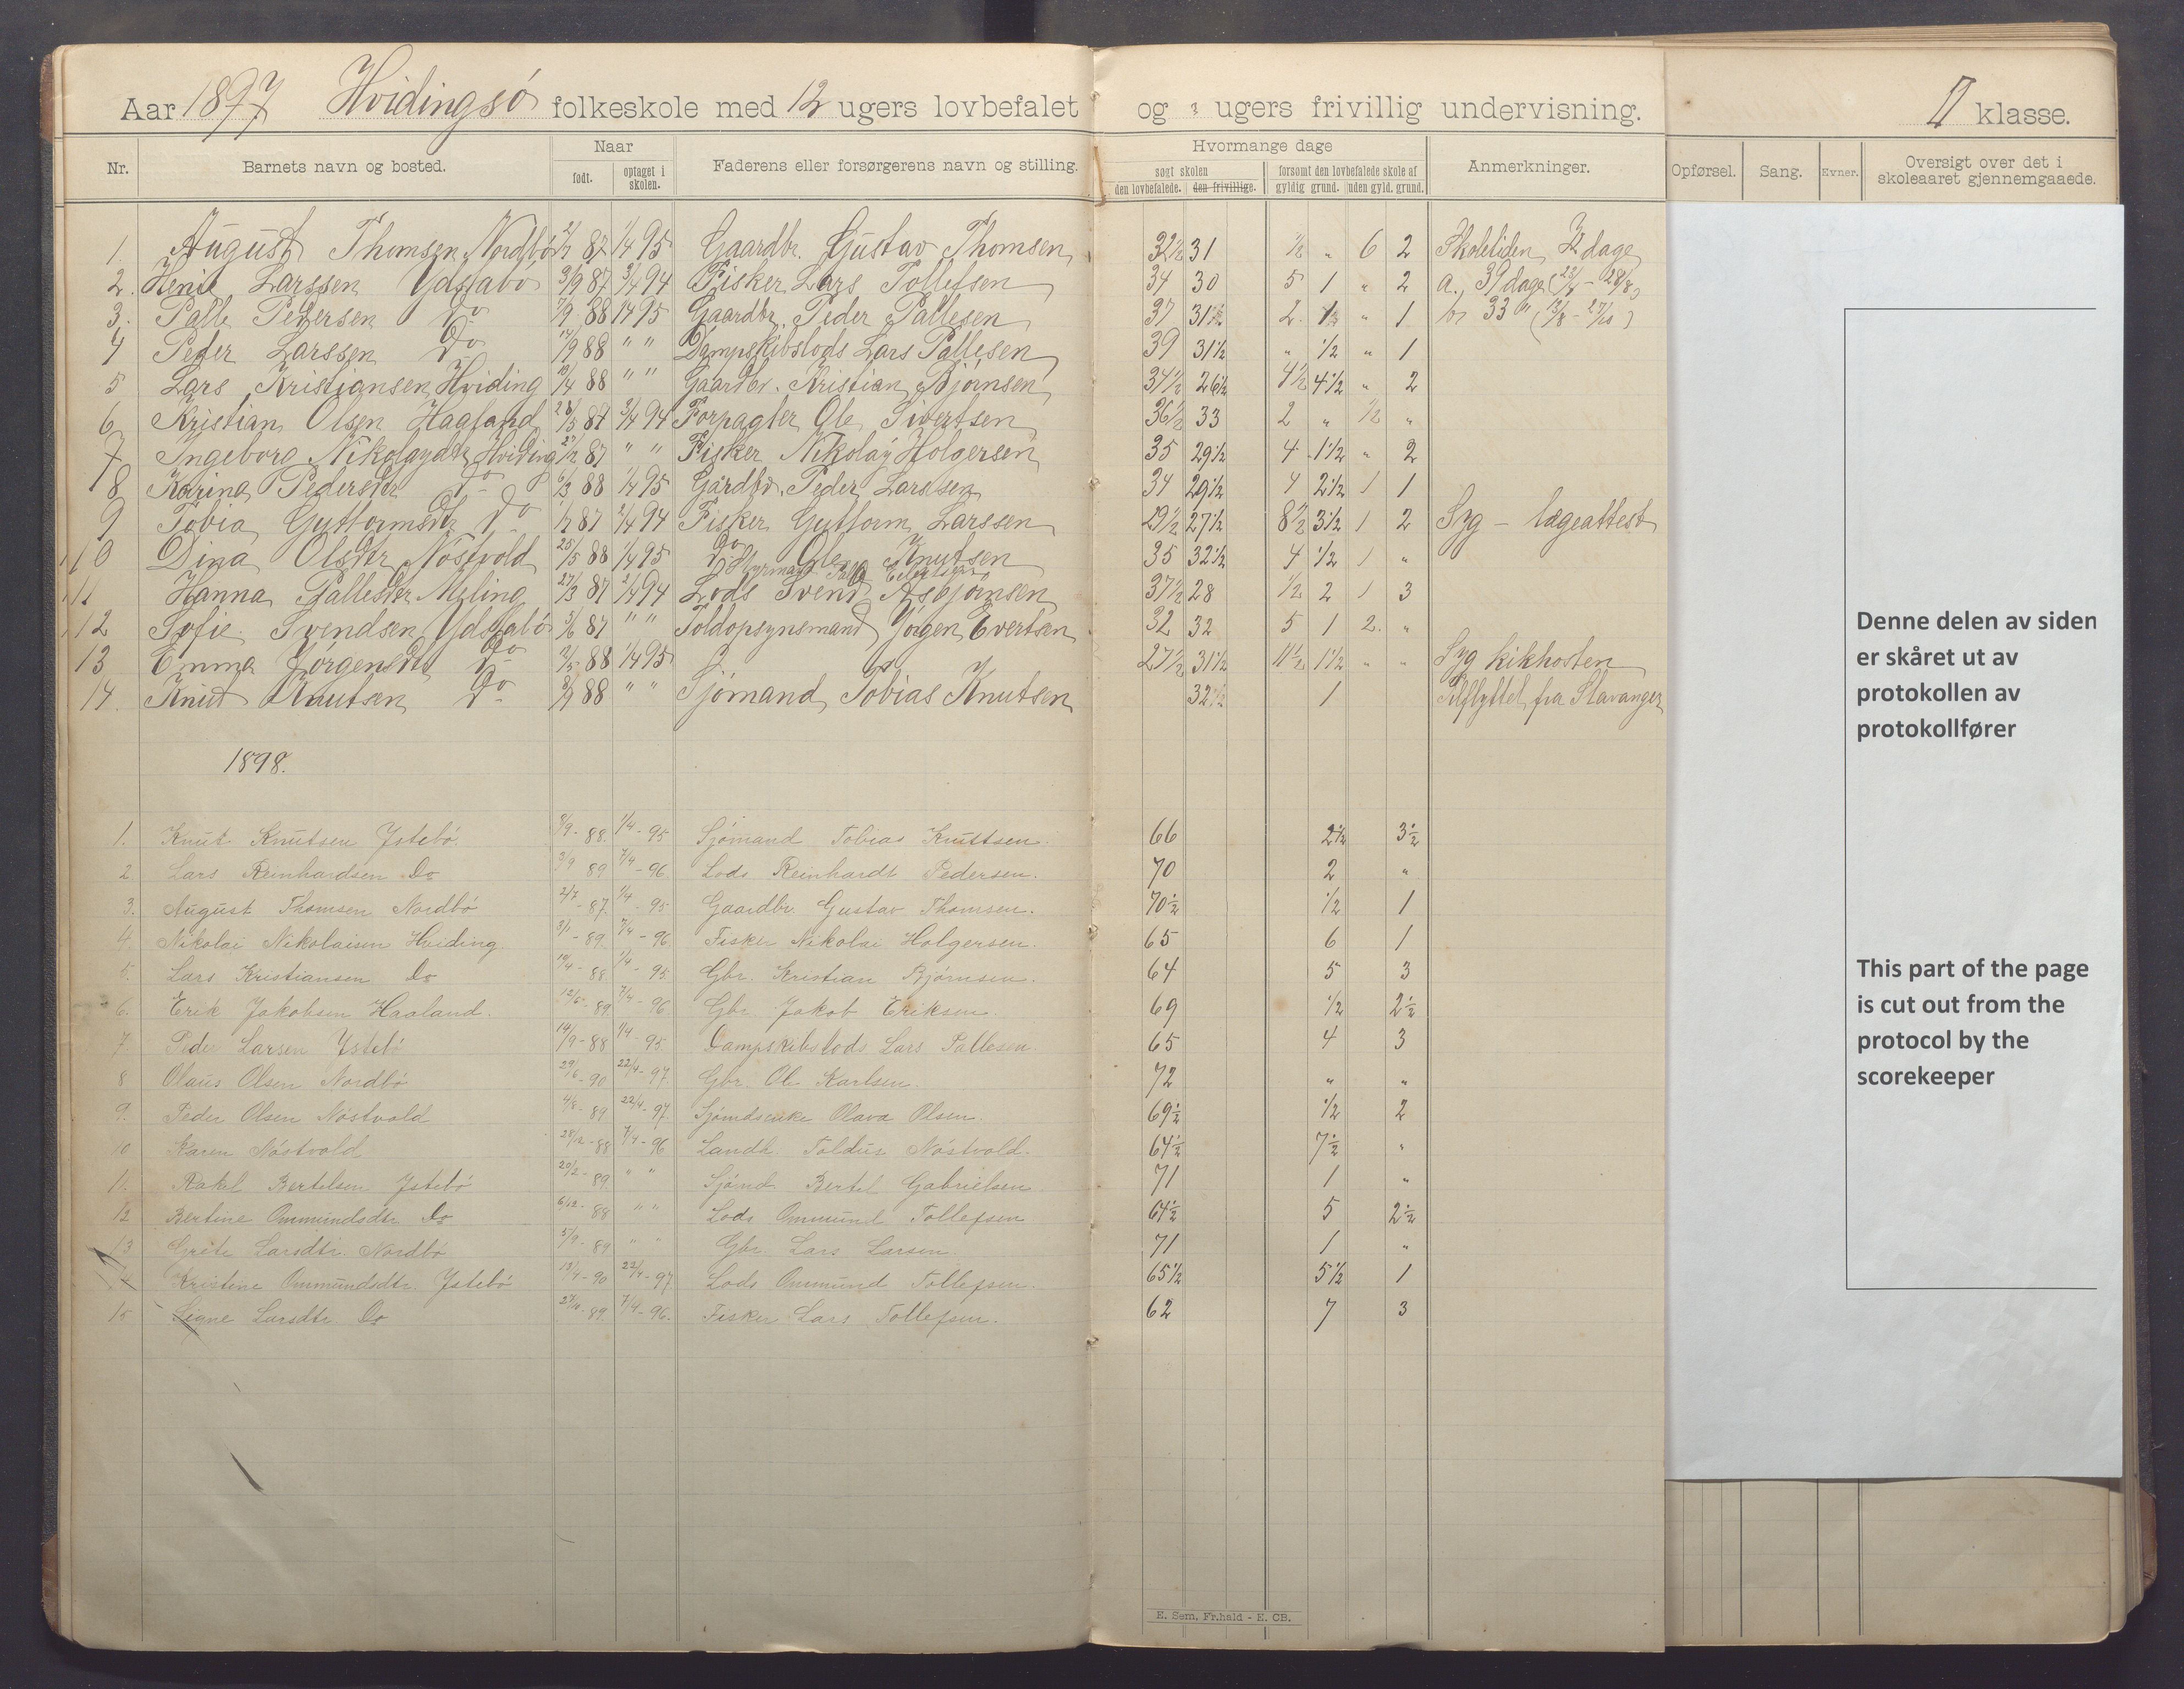 Aar 1897 Hvidingsö folkeskole med 12 ugers lovbefalet og ugers frivillig undervisning. II klasse.
Nr. Barnets navn og bosted. Naar født. optaget i skolen. Faderens eller forsørgerens navn og stilling. Hvormange dage søgt skolen den lovbefalede. den frivillige. forsømt den lovbefalede skole af gyldig grund. uden gyld. grund. Anmerkninger. Opførsel. Sang. Evner. Oversigt over det i skoleaaret gjennemgaaede.
1. August Thomsen Nordbö 2/7 87 1/4 95 Gaardbr. Gustav Thomsen 32½ 31 ½ „ 6 2 Skoletiden dage
2. Larssen Ydstabö 3/9 87 3/4 94 Fisker Lars Tollefsen 34 30 5 1 „ 2 a. 39 dage
3. Palle Pedersen Do 7/9 88 1/4 95 Gaardbr. Peder Pallesen 37 31½ 2 „ 1 b. 33 "
4 Peder Larssen Do 14/9 88 " " Dampskibslods Lars Pallesen 39 31½ „ ½ „ 1
5 Lars Kristiansen Hviding 19/4 88 " " Gaardbr. Kristian Björnsen 34½ 26½ 4½ 4½ „ 2
6 Kristian Olsen Haaland 28/5 87 3/4 94 Forpagter Ole Sivertsen 36½ 33 2 „ ½ „
7 Ingeborg Nikolaydtr Hviding 87 " " Fisker Nikolay Holgersen 35 29½ 4 1½ „ 2
8 Karina Pedersdtr Do 6/3 88 1/4 95 Gårdbr. Peder Larssen 34 29½ 4 2½ 1 1
9 Tobia Guttormsdtr Do 1/7 87 2/4 94 Fisker Guttorm Larssen 29½ 27½ 8½ 3½ 1 2 Syg – lægeattest
10 Dina Olsdtr Nöstvold 25/5 88 1/4 95 Do Ole Knutsen 35 32½ 4 ½ 1 „
Styrmand Palle
11 Hanna Pallesdtr Meling 27/3 87 2/4 94 Lods Svend Asbjörnsen 37½ 28 ½ 2 1 3
12 Sofie Svendsen Ydstabö 5/6 87 " " Toldopsynsmand Jörgen Evertsen 32 32 5 1 2 „
13 Emma Jörgensdtr Do 2/5 88 1/4 95 27½ 31½ 11½ 1½ „ „ Syg kikhosten
14. Knut Knutsen Do 8/9 88 " " Sjömand Tobias Knutsen 32½ 1 Tilflyttet fra Stavanger
1898.
1. Knut Knutsen Ystebö 8/9 - 88. 1/4 - 95 Sjömand Tobias Knuttsen. 66 2½ 3½
2 Lars Reinhardsen Do 3/9 89 7/4 - 96. Lods Reinhardt Pedersen. 70 2 „
3. August Thomsen Nordbö 2/7 - 87. 1/4 - 95 Gaardbr. Gustav Thomsen. 70½ ½ 1
4. Nikolai Nikolaisen Hviding. 3/1 - 89. 7/4 - 96 Fisker Nikolai Holgersen. 65 6 1
5. Lars Kristiansen Do 19/4 - 88 1/4 - 95. Gbr. Kristian Björnsen. 64 5 3
6. Erik Jakobsen Haaland. 12/5 - 89 7/4 - 96 Gbr. Jakob Eriksen. 69 ½ 2½
7. Peder Larsen Ystebö 14/9 - 88 1/4 - 95. Dampskibslods Lars Pallesen. 65 4 3
8 Olaus Olsen Nordbö 29/6 - 90 22/4 - 97. Gbr. Ole Karlsen. 72 „ „
9. Peder Olsen Nöstvold 4/8 - 89 22/4 - 97. Sjömdsenke Olava Olsen. 69½ ½ 2
10 Karen Nöstvold 28/12 - 88 7/4 - 96 Landh. Toldus Nöstvold. 64½ 7½ „
11. Rakel Bertelsen Ystebö 20/2 - 89. " " Sjömd. Bertel Gabrielsen. 71 1 „
12 Bertine Ommundsdtr. Do 6/12 - 88 " " Lods Ommund Tollefsen 64½ 5 2½
13 Grete Larsdtr. Nordbö 5/9 - 89 " " Gbr. Lars Larsen 71 1 „
14 Kristine Ommundsdtr. Ystebö 18/4 - 90 22/4 - 97. Lods Ommund Tollefsen. 65½ 5½ 1
15 Signe Larsdtr. Do 89. 7/4 - 96. Fisker Lars Tollefsen. 62 7 3
Denne delen av siden
er skåret ut av
protokollen av
protokollfører
This part of the page
is cut out from the
protocol by the
scorekeeper
E. Sem, Fr.hald - E. CB.